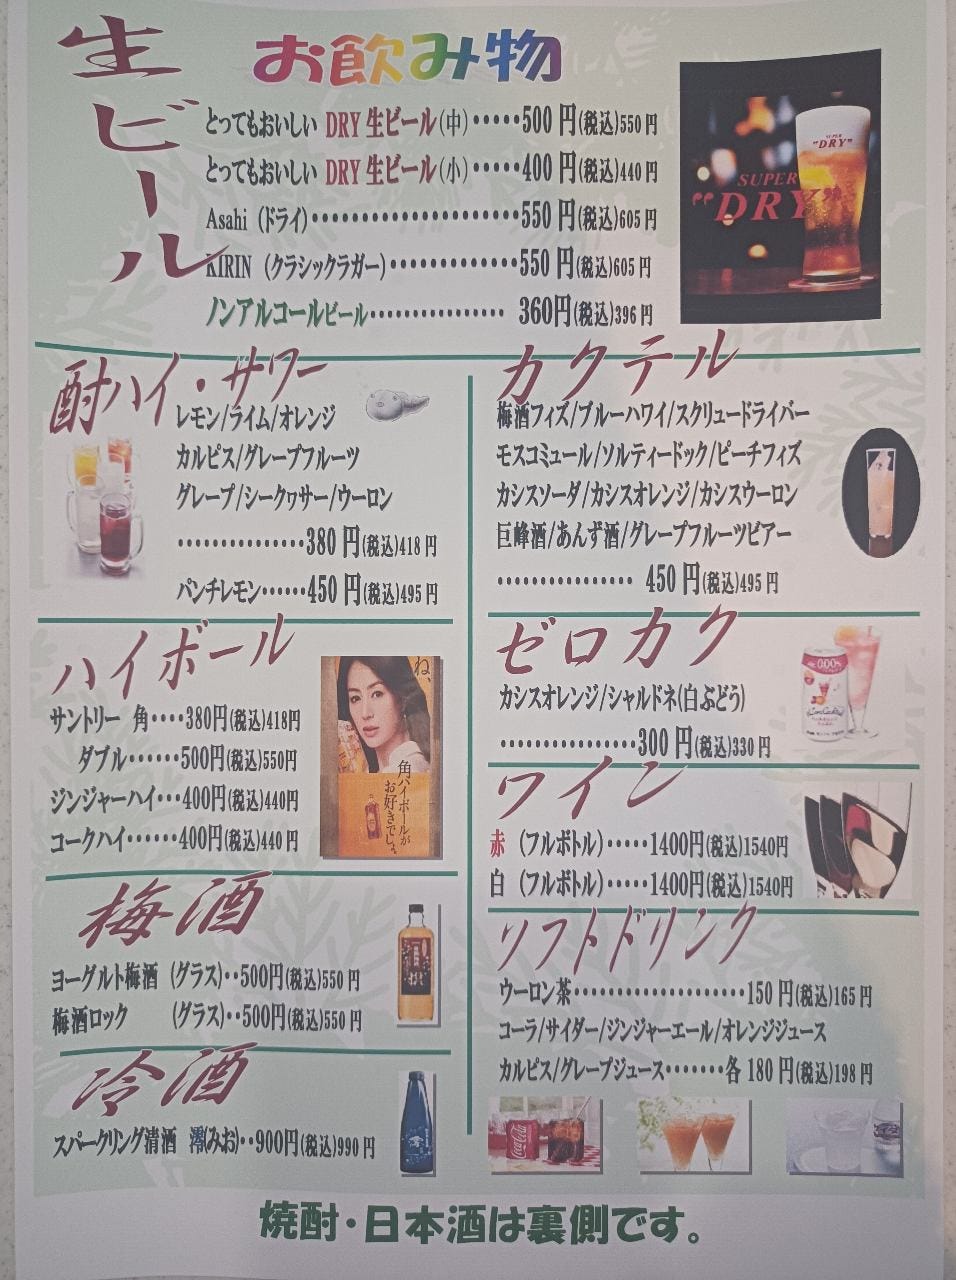 お飲み物
生ビール
とってもおいしい DRY 生ビール(中)・・・・・500円(税込)550円
とってもおいしい DRY 生ビール(小)・・・・・400円(税込)440円
Asahi (ドライ)・・・・・・・・・・・・・・・・・・・・・550円(税込)605円
KIRIN (クラシックラガー)・・・・・・・・・・・・・550円(税込)605円
ノンアルコールビール・・・・・・・・・・・・・・・ 360円(税込)396円
SUPER "DRY"
SUPER
"DRY"
酎ハイ・サワー
レモン/ライム/オレンジ
カルピス/グレープフルーツ
グレープ/シークヮサー/ウーロン
・・・・・・・・・・・・・・・380円(税込)418円
パンチレモン・・・・・・450円(税込)495円
ハイボール
サントリー 角・・・・380円(税込)418円
ダブル・・・・・・500円(税込)550円
ジンジャーハイ・・・400円(税込)440円
コークハイ・・・・・・400円(税込)440円
ね、
角ハイボールが
お好きでしょ。
梅酒
ヨーグルト梅酒 (グラス)・・500円(税込)550円
梅酒ロック (グラス)・・500円(税込)550円
冷酒
スパークリング清酒 澪(みお)・・900円(税込)990円
カクテル
梅酒フィズ/ブルーハワイ/スクリュードライバー
モスコミュール/ソルティードック/ピーチフィズ
カシスソーダ/カシスオレンジ/カシスウーロン
巨峰酒/あんず酒/グレープフルーツビアー
・・・・・・・・・・・・・・・ 450円(税込)495円
ゼロカク
カシスオレンジ/シャルドネ(白ぶどう)
・・・・・・・・・・・・・・・・300円(税込)330円
0.00%
ワイン
赤 (フルボトル)・・・・・1400円(税込)1540円
白 (フルボトル)・・・・・1400円(税込)1540円
ソフトドリンク
ウーロン茶・・・・・・・・・・・・・・・・・・・150円(税込)165円
コーラ/サイダー/ジンジャーエール/オレンジジュース
カルピス/グレープジュース・・・・・・・各180円(税込)198円
Coca-Cola
焼酎・日本酒は裏側です。